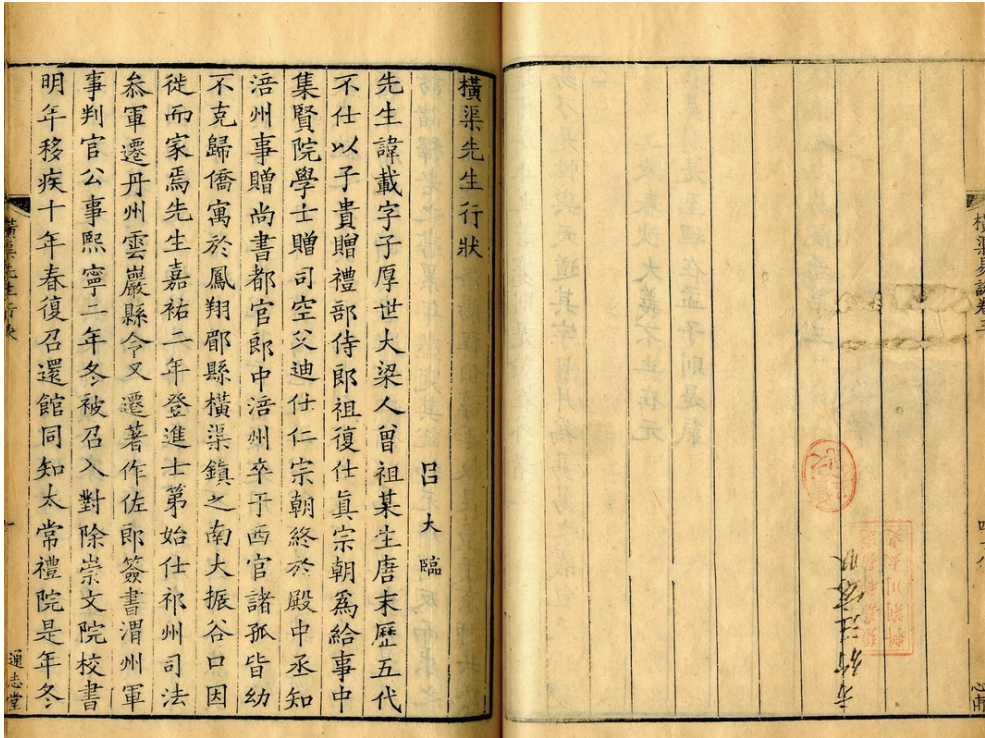 橫渠易說卷三
橫渠先生行狀
呂大臨
先生諱載字子厚世大梁人曾祖某生唐末歷五代
不仕以子貴贈禮部侍郎祖復仕眞宗朝爲給事中
集賢院學士贈司空父迪仕仁宗朝終於殿中丞知
涪州事贈尚書都官郎中涪州卒于西官諸孤皆幼
不克歸僑寓於鳳翔郿縣橫渠鎮之南大振谷口因
徙而家焉先生嘉祐二年登進士第始仕祁州司法
叅軍遷丹州雲巖縣令又遷著作佐郎簽書渭州軍
事判官公事熙寧二年冬被召入對除崇文院校書
明年移疾十年春復召還館同知太常禮院是年冬
橫渠先生行狀
一
通志堂